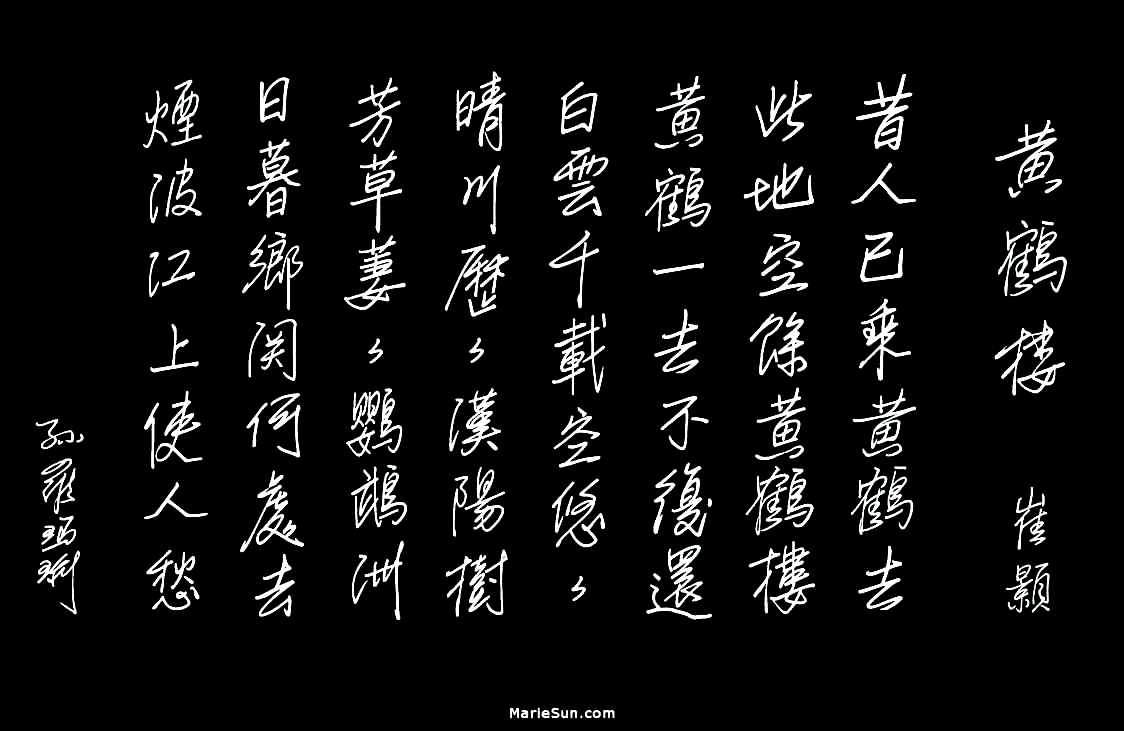 黄鶴楼 崔顥
昔人已乘黄鶴去
此地空餘黄鶴樓
黄鶴一去不復還
白雲千載空悠々
晴川歷々漢陽樹
芳草萋々鸚鵡洲
日暮鄉関何處去
煙波江上使人愁
孫羅瑪琍
MarieSun.com